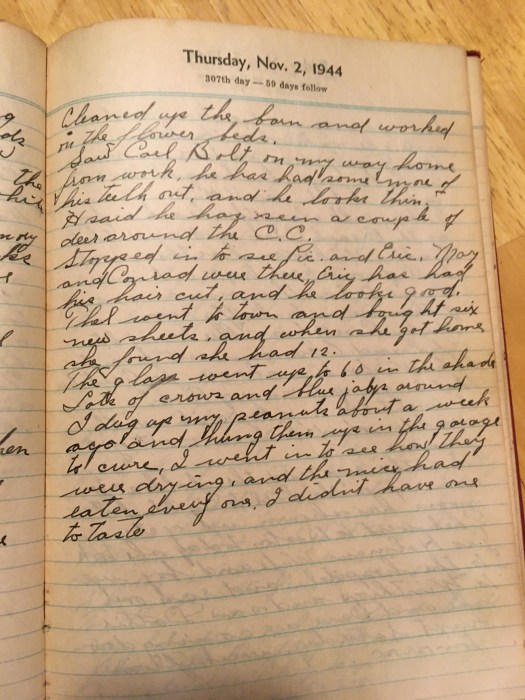 Thursday, Nov. 2, 1944
307th day — 59 days follow
Cleaned up the barn and worked
in the flower beds.
Saw Carl Bolt on my way home
from work, he has had some more of
his teeth out, and he looks thin.
H said he has seen a couple of
deer around the C.C.
Stopped in to see Pic. and Eric. May
and Conrad were there, Eric has had
his hair cut, and he looks good.
Thel went to town and bought six
new sheets, and when she got home
she found she had 12.
The glass went up to 60 in the shade
Lots of crows and blue jays around
I dug up my peanuts about a week
ago and hung them up in the garage
to cure, I went in to see how they
were drying, and the mice had
eaten every one, I didn't have one
to taste